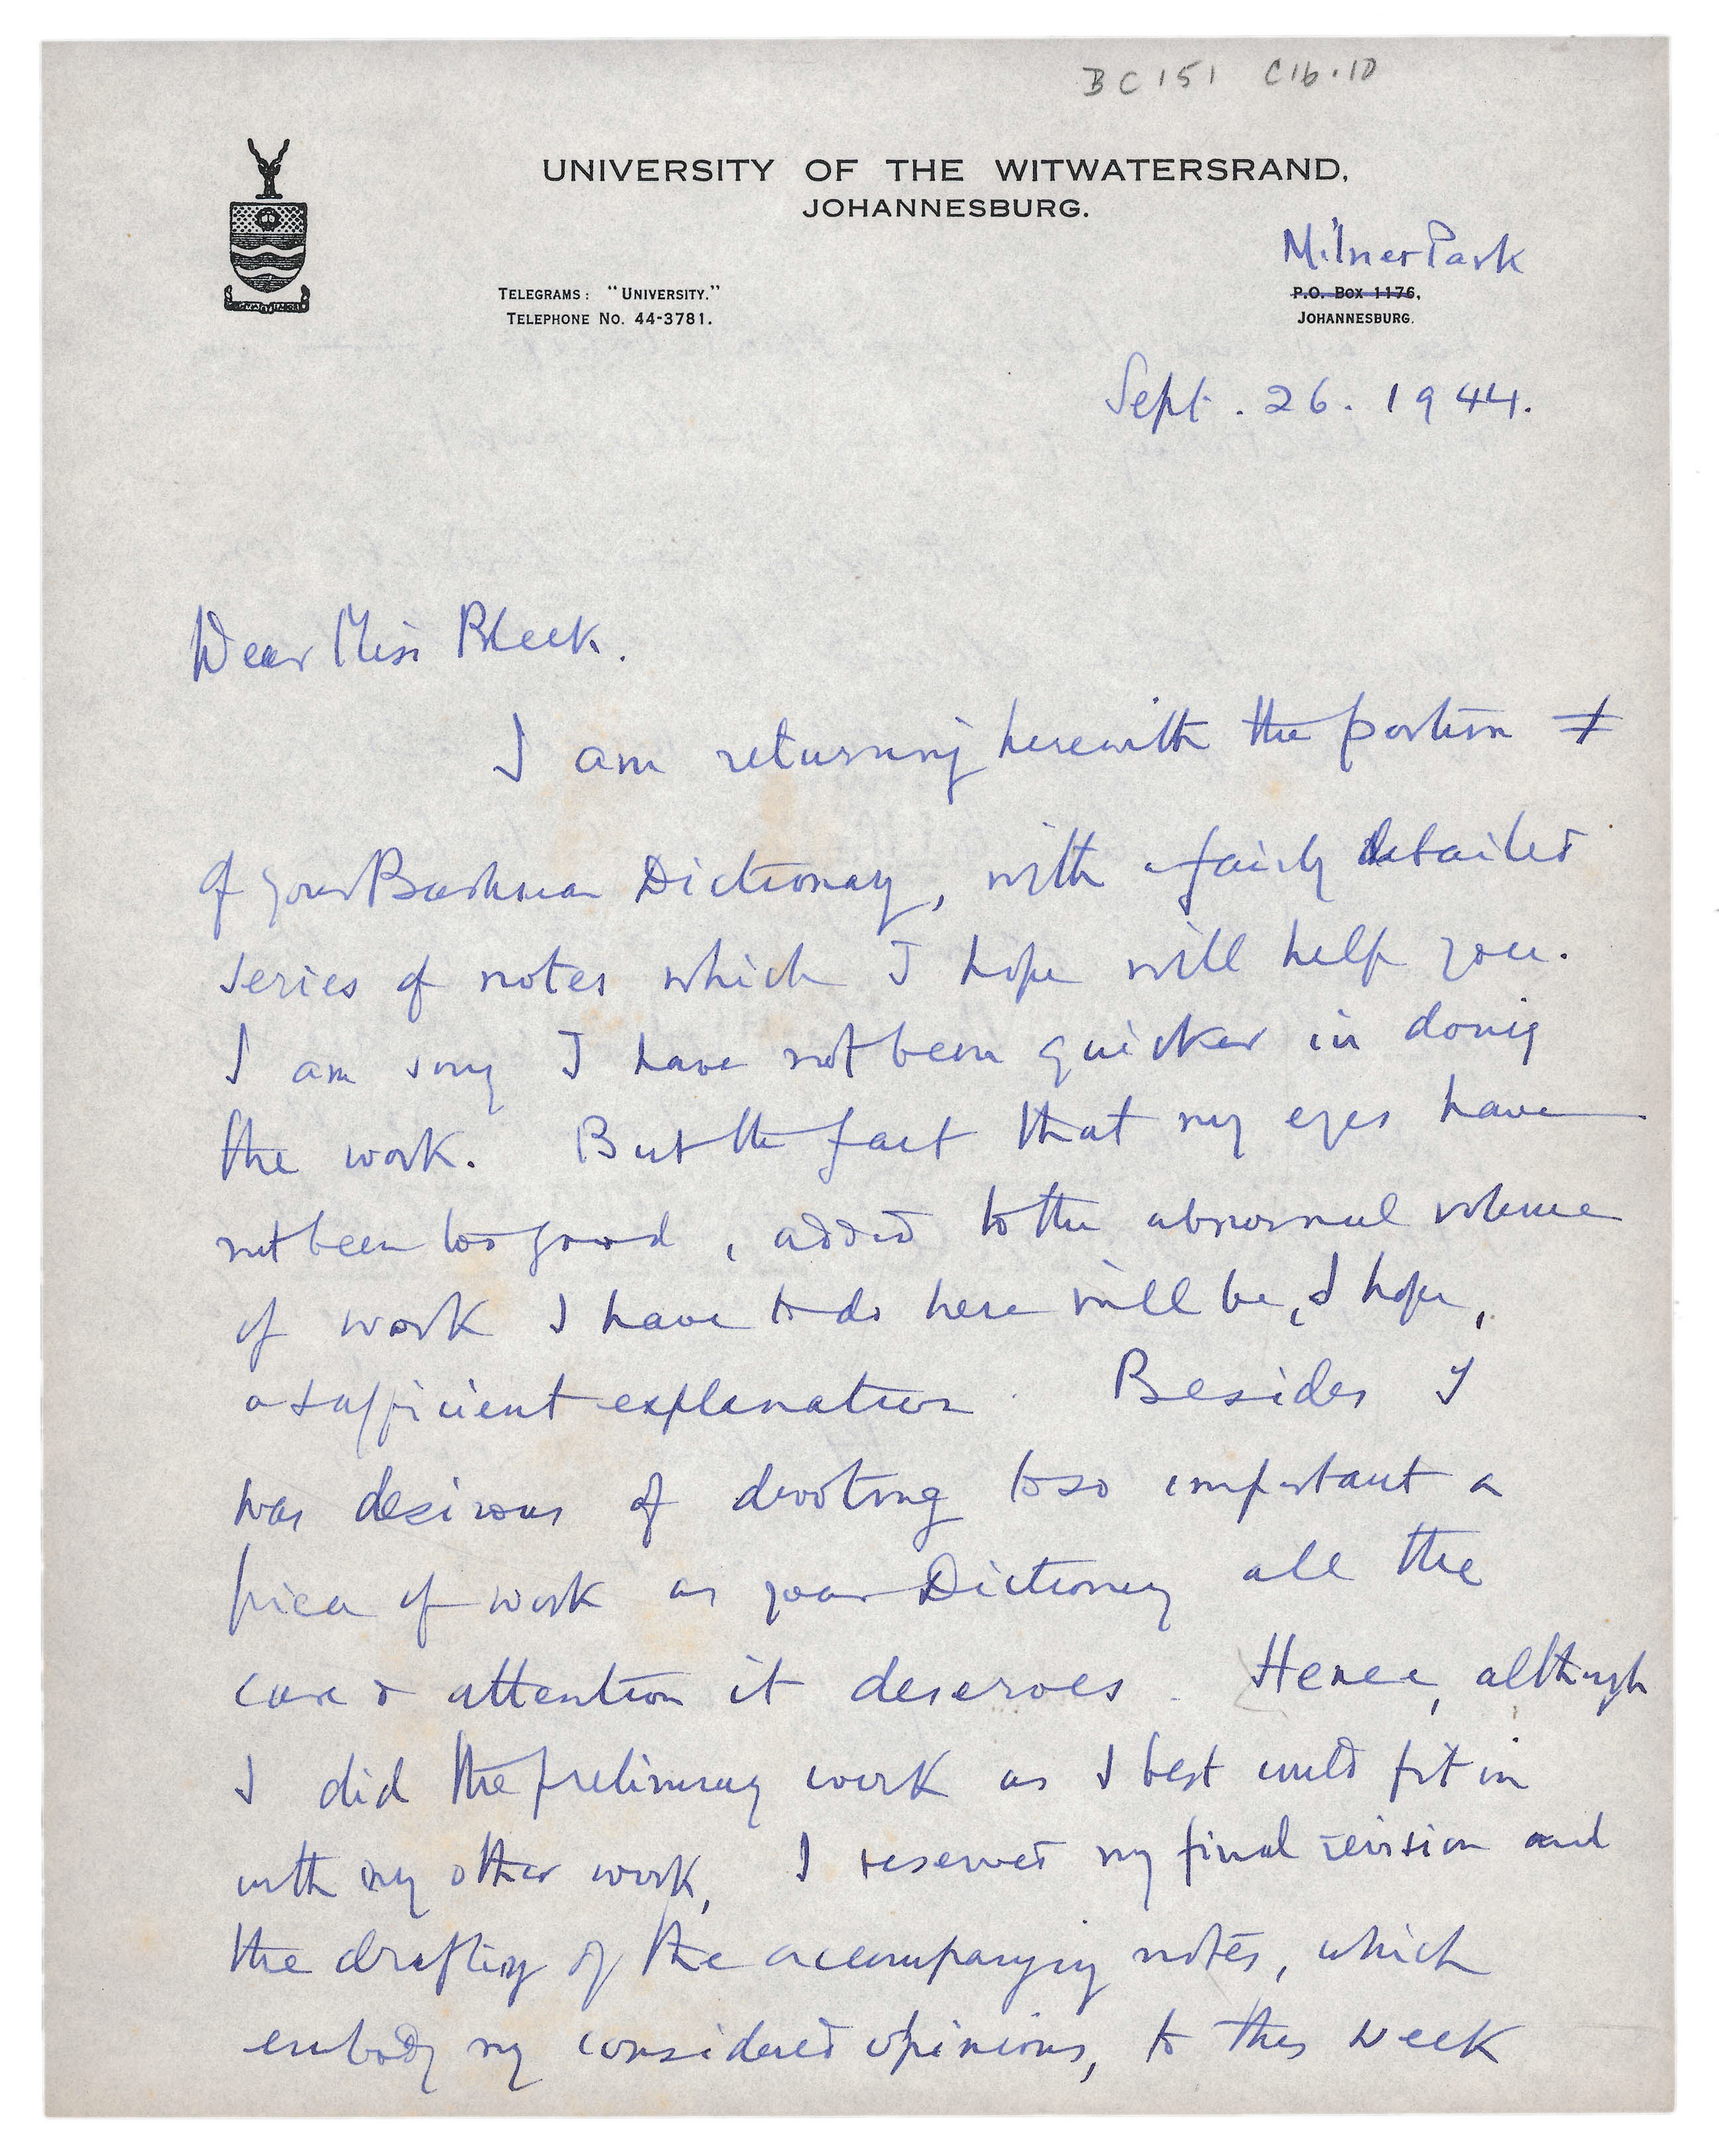 BC151 C16.10
UNIVERSITY OF THE WITWATERSRAND,
JOHANNESBURG.
Milner Park
TELEGRAMS: "UNIVERSITY."
P.O. BOX 1176,
TELEPHONE NO. 44-3781.
JOHANNESBURG.
Sept. 26. 1944.
Dear Miss Bleek.
I am returning herewith the portion ≠
of your Bushman Dictionary, with a fairly detailed
series of notes which I hope will help you.
I am sorry I have not been quicker in doing
the work. But the fact that my eyes have
not been too good, added to the abnormal volume
of work I have to do here will be, I hope,
a sufficient explanation. Besides I
was desirous of devoting to so important a
piece of work as your Dictionary all the
care & attention it deserves. Hence, although
I did the preliminary work as I best could fit in
with my other work, I reserved my final revision and
the drafting of the accompanying notes, which
embody my considered opinions, to this week